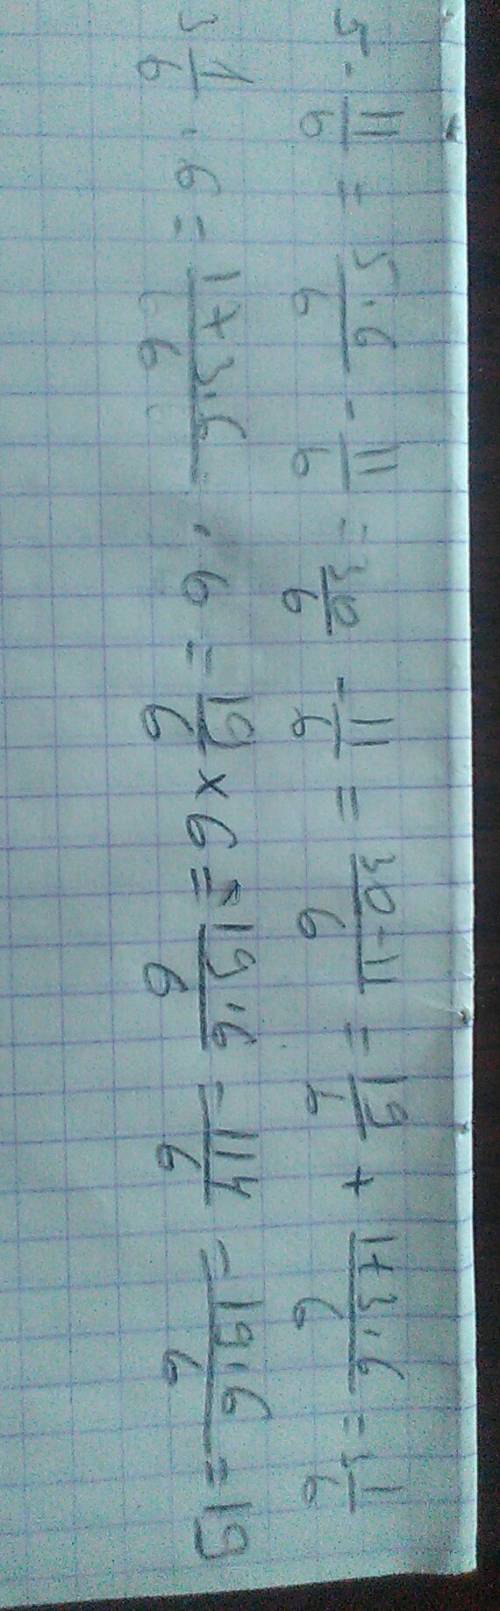 5 - 11/6 = 5·6/6 - 11/6 = 30/6 - 11/6 = 30-11/6 = 19/6 + 1+3·6/6 = 3 1/6
3 1/6 · 6 = 1+3·6/6 · 6 = 19/6 × 6 = 19·6/6 = 114/6 = 19·6/6 = 19